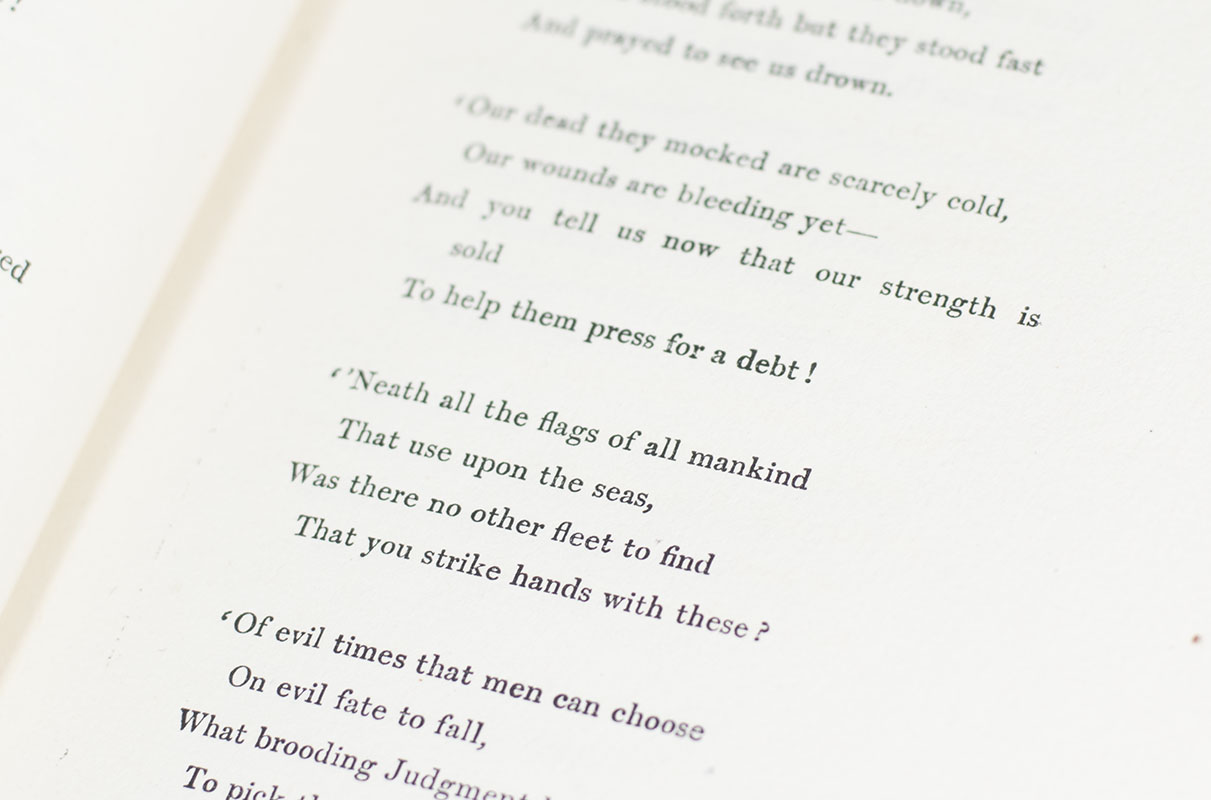 ed
stood forth but they stood fast
And prayed to see us drown.
‘Our dead they mocked are scarcely cold,
Our wounds are bleeding yet—
And you tell us now that our strength is
sold
To help them press for a debt!
‘’Neath all the flags of all mankind
That use upon the seas,
Was there no other fleet to find
That you strike hands with these?
‘Of evil times that men can choose
On evil fate to fall,
What brooding Judgment
To pick